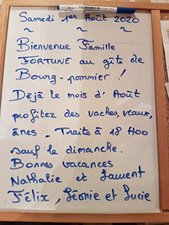 Samedi 1er Août 2020
~ ~ ~
Bienvenue Famille
FORTUNE au gîte de
Bourg-pommier !
Déjà le mois d'Août
profitez des vaches, veaux,
ânes - Traite à 18H00
sauf le dimanche.
Bonnes vacances
Nathalie et Laurent
Félix, Léonie et Lucie